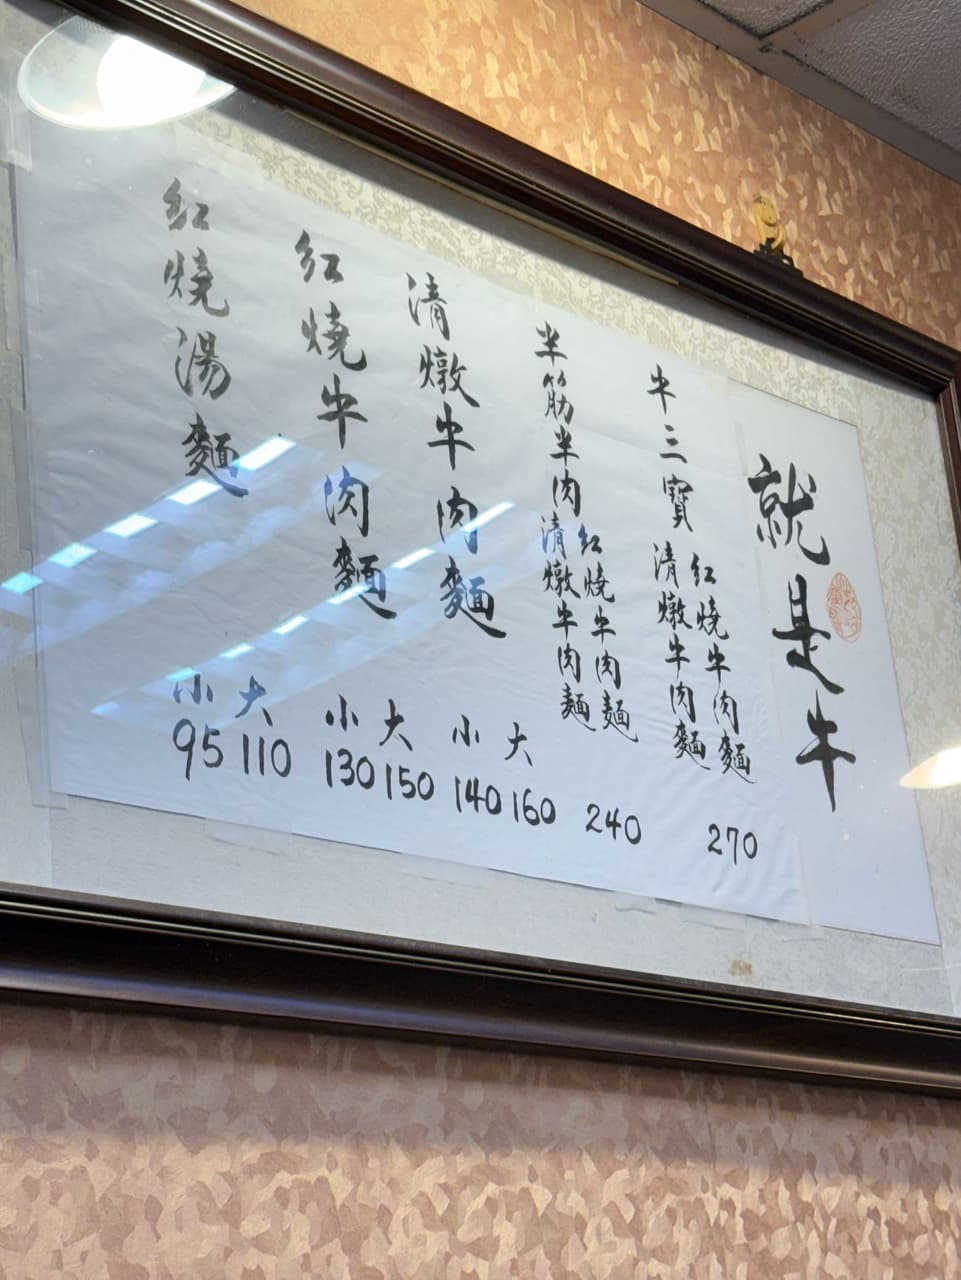 就是牛
牛三寶 紅燒牛肉麵 清燉牛肉麵 270
半筋半肉 紅燒牛肉麵 清燉牛肉麵 240
清燉牛肉麵 小 140 大 160
紅燒牛肉麵 小 130 大 150
紅燒湯麵 小 95 大 110